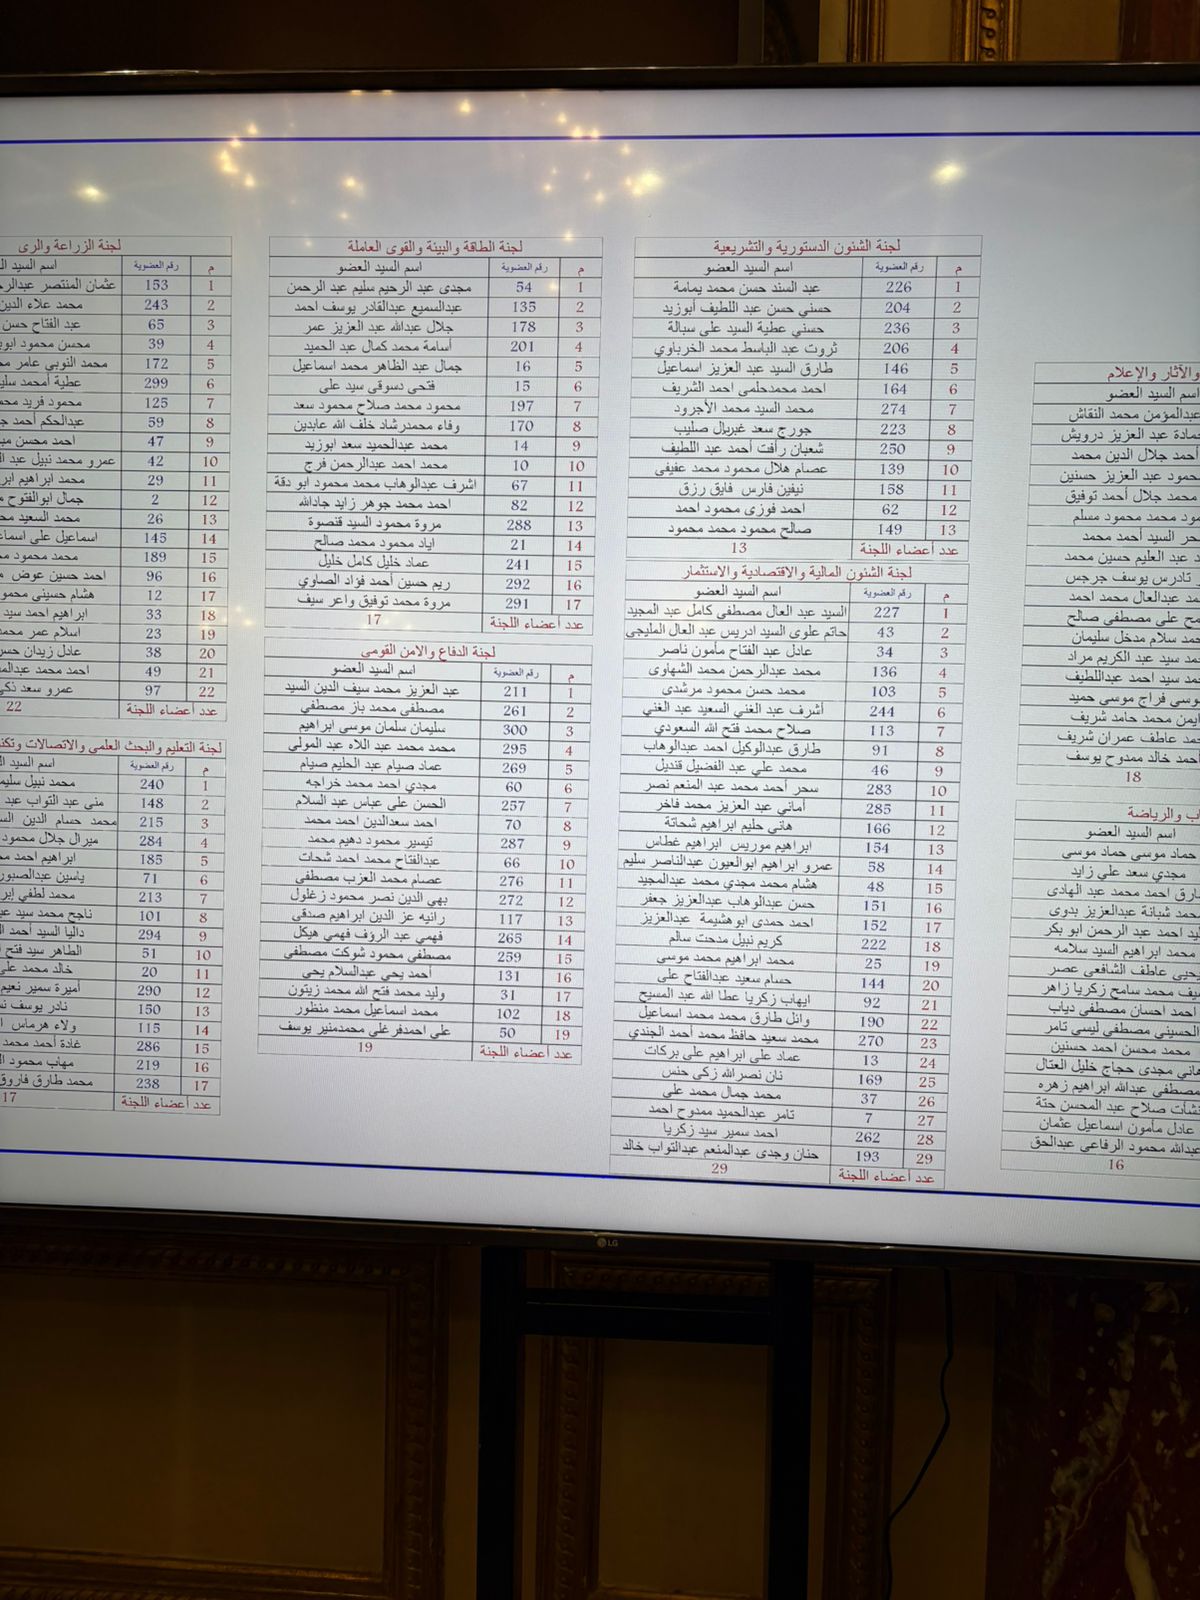 والآثار والإعلام
اسم السيد العضو
عبدالمؤمن محمد النقاش
حمادة عبد العزيز درويش
أحمد جلال الدين محمد
محمود عبد العزيز حسنين
محمد جلال أحمد توفيق
محمد محمود مسلم
سحر السيد أحمد محمد
عبد العليم حسين محمد
تادرس يوسف جرجس
عبدالعال محمد احمد
على مصطفى صالح
سلام مدخل سليمان
سيد عبد الكريم مراد
سيد احمد عبداللطيف
موسي فراج موسي حميد
ايمن محمد حامد شريف
عاطف عمران شريف
احمد خالد ممدوح يوسف
18
والرياضة
اسم السيد العضو
حماد موسى حماد موسى
مجدي سعد علي زايد
طارق احمد محمد عبد الهادى
محمد شبانة عبدالعزيز بدوى
احمد عبد الرحمن ابو بكر
محمد ابراهيم السيد سلامه
يحيى عاطف الشافعي عصر
محمد سامح زكريا زاهر
احمد احسان مصطفى دياب
الحسيني مصطفى ليسي تامر
محمد محسن احمد حسنين
هاني مجدى حجاج خليل العتال
مصطفى عبدالله ابراهيم زهره
نشأت صلاح عبد المحسن حتة
عادل مأمون اسماعيل عثمان
عبدالله محمود الرفاعي عبدالحق
16
لجنة الشئون الدستورية والتشريعية
م رقم العضوية اسم السيد العضو
1 226 عبد السند حسن محمد يمامة
2 204 حسني حسن عبد اللطيف أبوزيد
3 236 حسني عطية السيد على سبالة
4 206 ثروت عبد الباسط محمد الخرباوي
5 146 طارق السيد عبد العزيز اسماعيل
6 164 احمد محمدحلمى احمد الشريف
7 274 محمد السيد محمد الأجرود
8 223 جورج سعد غبريال صليب
9 250 شعبان رأفت أحمد عبد اللطيف
10 139 عصام هلال محمود محمد عفيفى
11 158 نيفين فارس فايق رزق
12 62 احمد فوزى محمود احمد
13 149 صالح محمود محمد محمود
عدد أعضاء اللجنة 13
لجنة الشئون المالية والاقتصادية والاستثمار
م رقم العضوية اسم السيد العضو
1 227 السيد عبد العال مصطفى كامل عبد المجيد
2 43 حاتم علوى السيد ادريس عبد العال المليجي
3 34 عادل عبد الفتاح مأمون ناصر
4 136 محمد عبدالرحمن محمد الشهاوى
5 103 محمد حسن محمود مرشدى
6 244 أشرف عبد الغني السعيد عبد الغني
7 113 صلاح محمد فتح الله السعودي
8 91 طارق عبدالوكيل احمد عبدالوهاب
9 46 محمد علي عبد الفضيل قنديل
10 283 سحر أحمد محمد عبد المنعم نصر
11 285 أماني عبد العزيز محمد فاخر
12 166 هاني حليم ابراهيم شحاتة
13 154 ابراهيم موريس ابراهيم غطاس
14 58 عمرو ابراهيم ابوالعيون عبدالناصر سليم
15 48 هشام محمد مجدي محمد عبدالمجيد
16 151 حسن عبدالوهاب عبدالعزيز جعفر
17 152 احمد حمدى ابوهشيمة عبدالعزيز
18 222 كريم نبيل مدحت سالم
19 25 محمد ابراهيم محمد موسى
20 144 حسام سعيد عبدالفتاح على
21 92 ايهاب زكريا عطا الله عبد المسيح
22 190 وائل طارق محمد محمد اسماعيل
23 270 محمد سعيد حافظ محمد أحمد الجندي
24 13 عماد على ابراهيم على بركات
25 169 نان نصرالله زكى حنس
26 37 محمد جمال محمد على
27 7 تامر عبدالحميد ممدوح احمد
28 262 احمد سمير سيد زكريا
29 193 حنان وجدى عبدالمنعم عبدالتواب خالد
عدد أعضاء اللجنة 29
لجنة الطاقة والبيئة والقوى العاملة
م رقم العضوية اسم السيد العضو
1 54 مجدى عبد الرحيم سليم عبد الرحمن
2 135 عبدالسميع عبدالقادر يوسف احمد
3 178 جلال عبدالله عبد العزيز عمر
4 201 أسامة محمد كمال عبد الحميد
5 16 جمال عبد الظاهر محمد اسماعيل
6 15 فتحى دسوقى سيد على
7 197 محمود محمد صلاح محمود سعد
8 170 وفاء محمدرشاد خلف الله عابدين
9 14 محمد عبدالحميد سعد ابوزيد
10 10 محمد احمد عبدالرحمن فرج
11 67 اشرف عبدالوهاب محمد محمود ابو دقة
12 82 احمد محمد جوهر زايد جادالله
13 288 مروة محمود السيد قنصوة
14 21 اياد محمود محمد صالح
15 241 عماد خليل كامل خليل
16 292 ريم حسين أحمد فؤاد الصاوي
17 291 مروة محمد توفيق واعر سيف
عدد أعضاء اللجنة 17
لجنة الدفاع والامن القومى
م رقم العضوية اسم السيد العضو
1 211 عبد العزيز محمد سيف الدين السيد
2 261 مصطفى محمد باز مصطفي
3 300 سليمان سلمان موسى ابراهيم
4 295 محمد محمد عبد اللاه عبد المولى
5 269 عماد صيام عبد الحليم صيام
6 60 مجدي احمد محمد خراجه
7 257 الحسن على عباس عبد السلام
8 70 احمد سعدالدين احمد محمد
9 287 تيسير محمود دهيم محمد
10 66 عبدالفتاح محمد احمد شحات
11 276 عصام محمد العزب مصطفى
12 272 بهي الدين نصر محمود زغلول
13 117 رانيه عز الدين ابراهيم صدقى
14 265 فهمي عبد الرؤف فهمي هيكل
15 259 مصطفى محمود شوكت مصطفى
16 131 أحمد يحي عبدالسلام يحي
17 31 وليد محمد فتح الله محمد زيتون
18 102 محمد اسماعيل محمد منظور
19 50 على احمدفر غلي محمدمنير يوسف
عدد أعضاء اللجنة 19
لجنة الزراعة والرى
م رقم العضوية اسم السيد
1 153 عثمان المنتصر
2 243 محمد علاء الدين
3 65 عبد الفتاح حسن
4 39 محسن محمود
5 172 محمد النوبي عامر
6 299 عطية أمحمد
7 125 محمود فريد
8 59 عبدالحكم أحمد
9 47 احمد محسن
10 42 عمرو محمد نبيل عبد
11 29 محمد ابراهيم
12 2 جمال ابوالفتوح
13 26 محمد السعيد
14 145 اسماعيل على
15 189 محمد محمود
16 96 احمد حسين عوض
17 12 هشام حسيني محمود
18 33 ابراهيم احمد سيد
19 23 اسلام عمر
20 38 عادل زيدان
21 49 احمد محمد
22 97 عمرو سعد
عدد أعضاء اللجنة 22
لجنة التعليم والبحث العلمى والاتصالات
م رقم العضوية اسم السيد
1 240 محمد نبيل
2 148 منى عبد التواب عبد
3 215 محمد حسام الدين
4 284 ميرال جلال محمود
5 185 ابراهيم احمد
6 71 ياسين عبدالصبور
7 213 محمد لطفي
8 101 ناجح محمد سيد
9 294 داليا السيد أحمد
10 51 الطاهر سيد فتح
11 20 خالد محمد
12 290 أميرة سمير نعيم
13 150 نادر يوسف
14 115 ولاء هرماس
15 286 غادة أحمد محمد
16 219 مهاب محمود
17 238 محمد طارق فاروق
عدد أعضاء اللجنة 17
LG